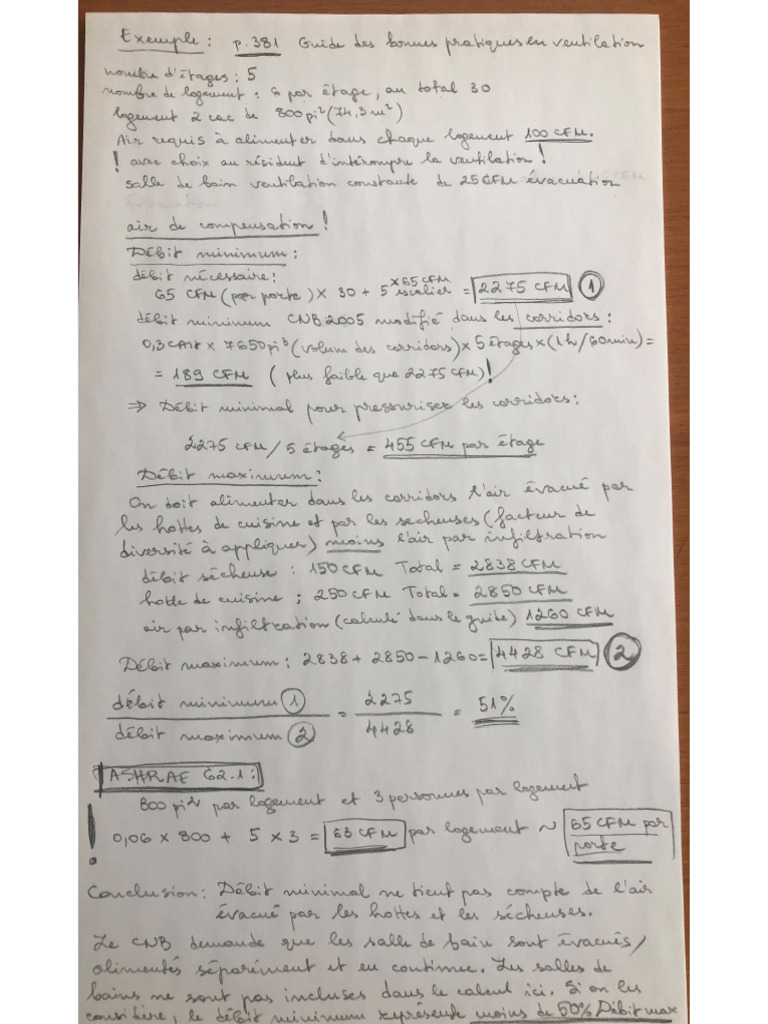 Exemple : p. 381 Guide des bonnes pratiques en ventilation
nombre d'étages : 5
nombre de logement : 6 par étage, au total 30
logement 2 cac de 800 pi² (74,3 m²)
Air requis à alimenter dans chaque logement 100 CFM.
! avec choix au résident d'intérompre la ventilation !
salle de bain ventilation constante de 25 CFM évacuation
air de compensation !
Débit minimum :
débit nécessaire :
65 CFM (par porte) × 30 + 5 ×65 CFM escalier = 2275 CFM 1
débit minimum CNB 2005 modifié dans les corridors :
0,3 × 7650 pi³ (volum des corridors) × 5 étages × (1h/60min) =
= 189 CFM ( plus faible que 2275 CFM) !
⇒ Débit minimal pour pressuriser les corridors :
2275 CFM / 5 étages = 455 CFM par étage
Débit maximum :
On doit alimenter dans les corridors l'air évacué par
les hottes de cuisine et par les secheuses (facteur de
diversité à appliquer) moins l'air par infiltration
débit sécheuse : 150 CFM Total = 2838 CFM
hotte de cuisine ; 250 CFM Total = 2850 CFM
air par infiltration (calculé dans le guide) 1260 CFM
Débit maximum : 2838 + 2850 - 1260 = 4428 CFM 2
débit minimum 1 / débit maximum 2 = 2275 / 4428 = 51%
ASHRAE 62.1 :
800 pi² par logement et 3 personnes par logement
! 0,06 × 800 + 5 × 3 = 63 CFM par logement ~ 65 CFM par porte
Conclusion : Débit minimal ne tient pas compte de l'air
évacué par les hottes et les sécheuses.
Le CNB demande que les salle de bain sont évacués/
alimentés séparément et en continue. Les salles de
bains ne sont pas incluses dans le calcul ici. Si on les
considère, le débit minimum représente moins de 50% Débit max